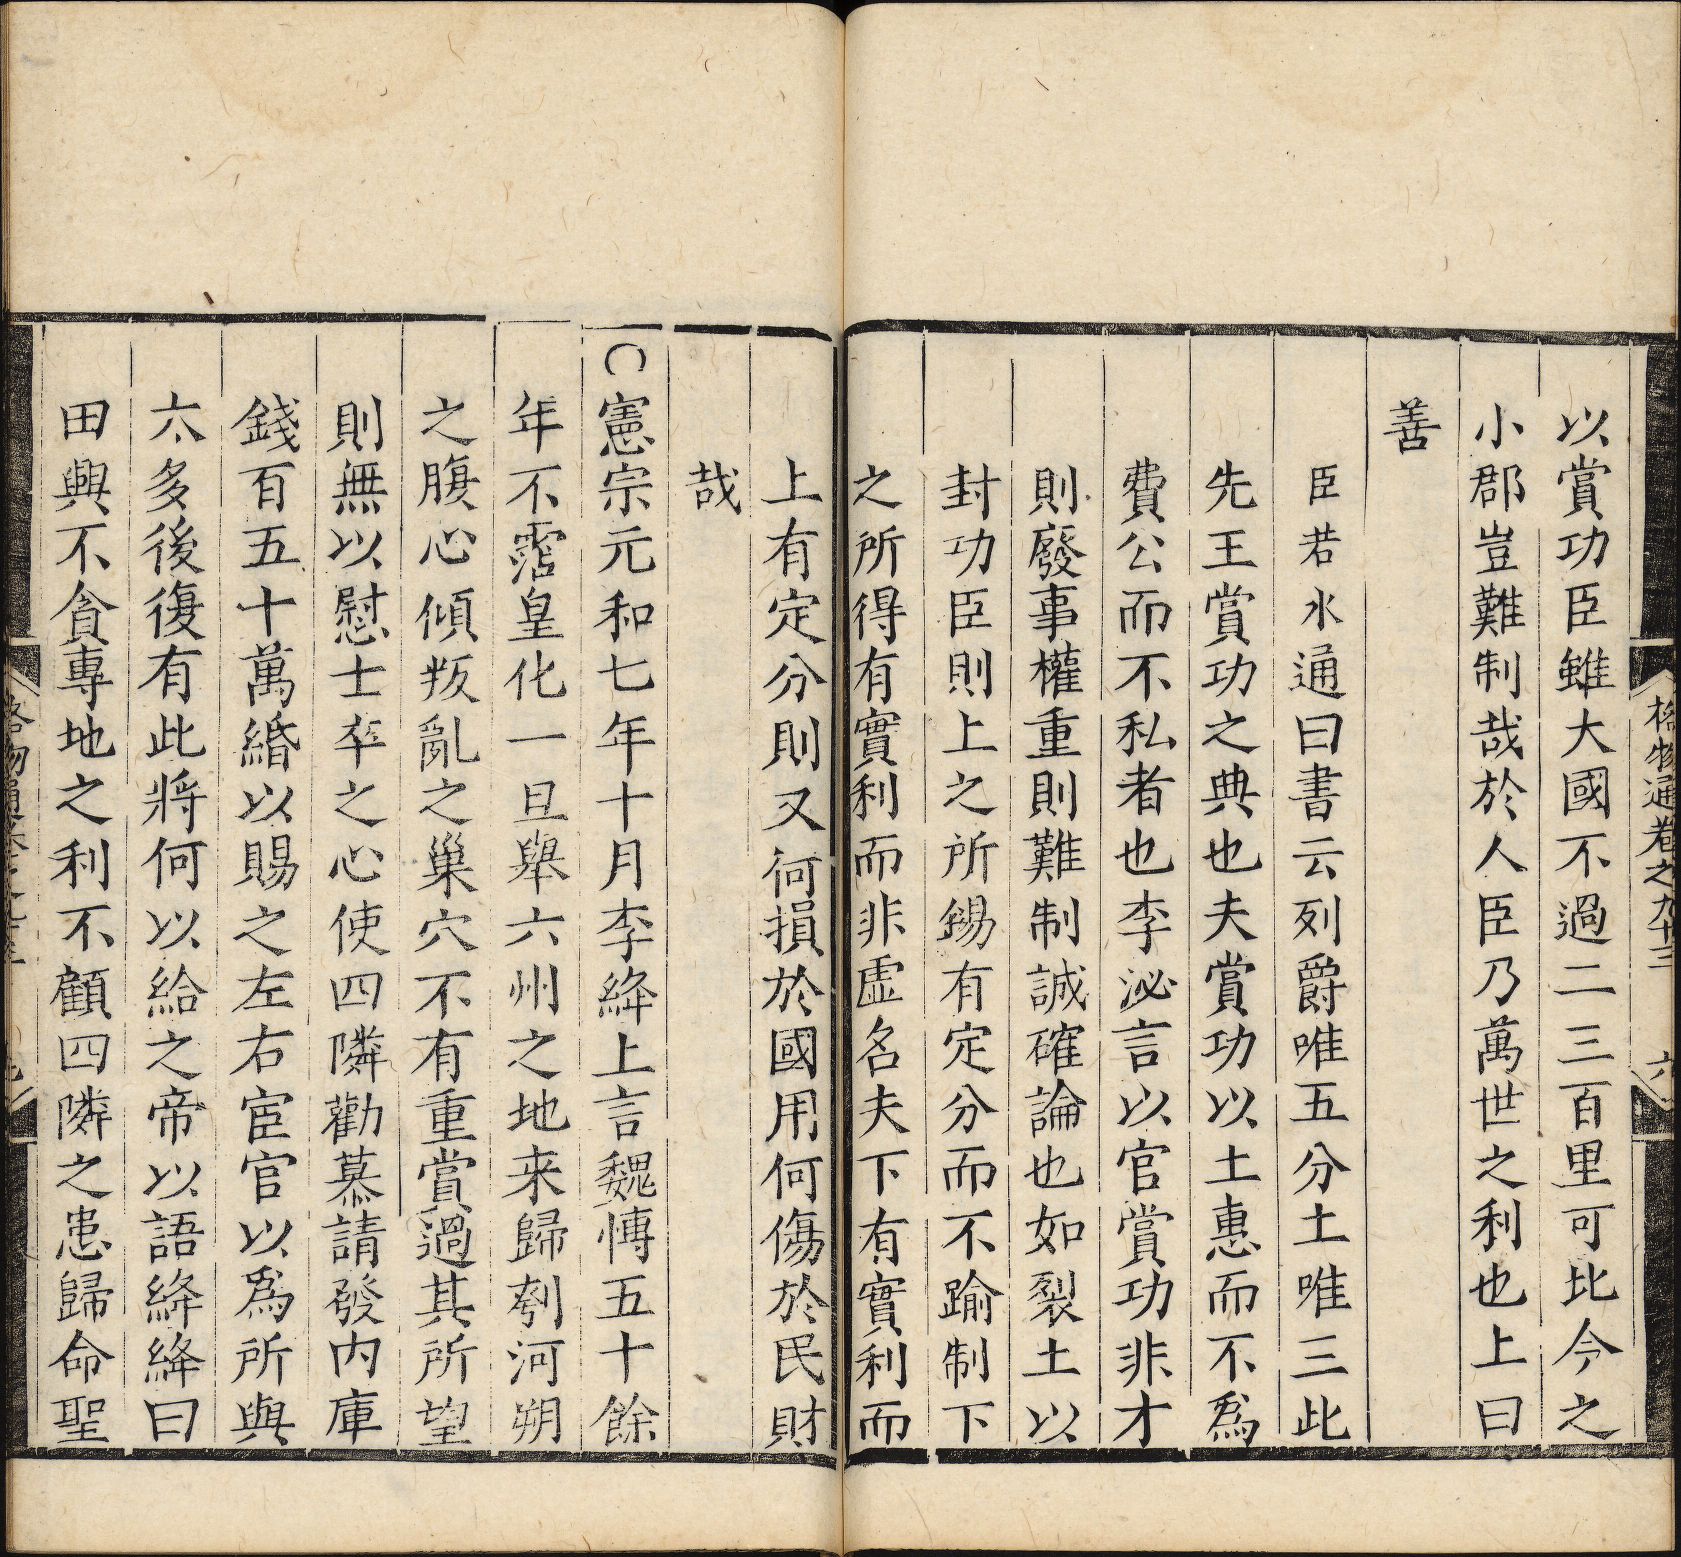 格物通卷之九十三 六
以賞功臣雖大國不過二三百里可比今之
小郡豈難制哉於人臣乃萬世之利也上曰
善
臣若水通曰書云列爵唯五分土唯三此
先王賞功之典也夫賞功以土惠而不爲
費公而不私者也李泌言以官賞功非才
則廢事權重則難制誠確論也如裂土以
封功臣則上之所錫有定分而不踰制下
之所得有實利而非虛名夫下有實利而
上有定分則又何損於國用何傷於民財
哉
〇憲宗元和七年十月李絳上言魏博五十餘
年不霑皇化一旦舉六州之地来歸刳河朔
之腹心傾叛亂之巢穴不有重賞過其所望
則無以慰士卒之心使四隣勸慕請發内庫
錢百五十萬緡以賜之左右宦官以爲所與
太多後復有此將何以給之帝以語絳絳曰
田興不貪專地之利不顧四隣之患歸命聖
格物通